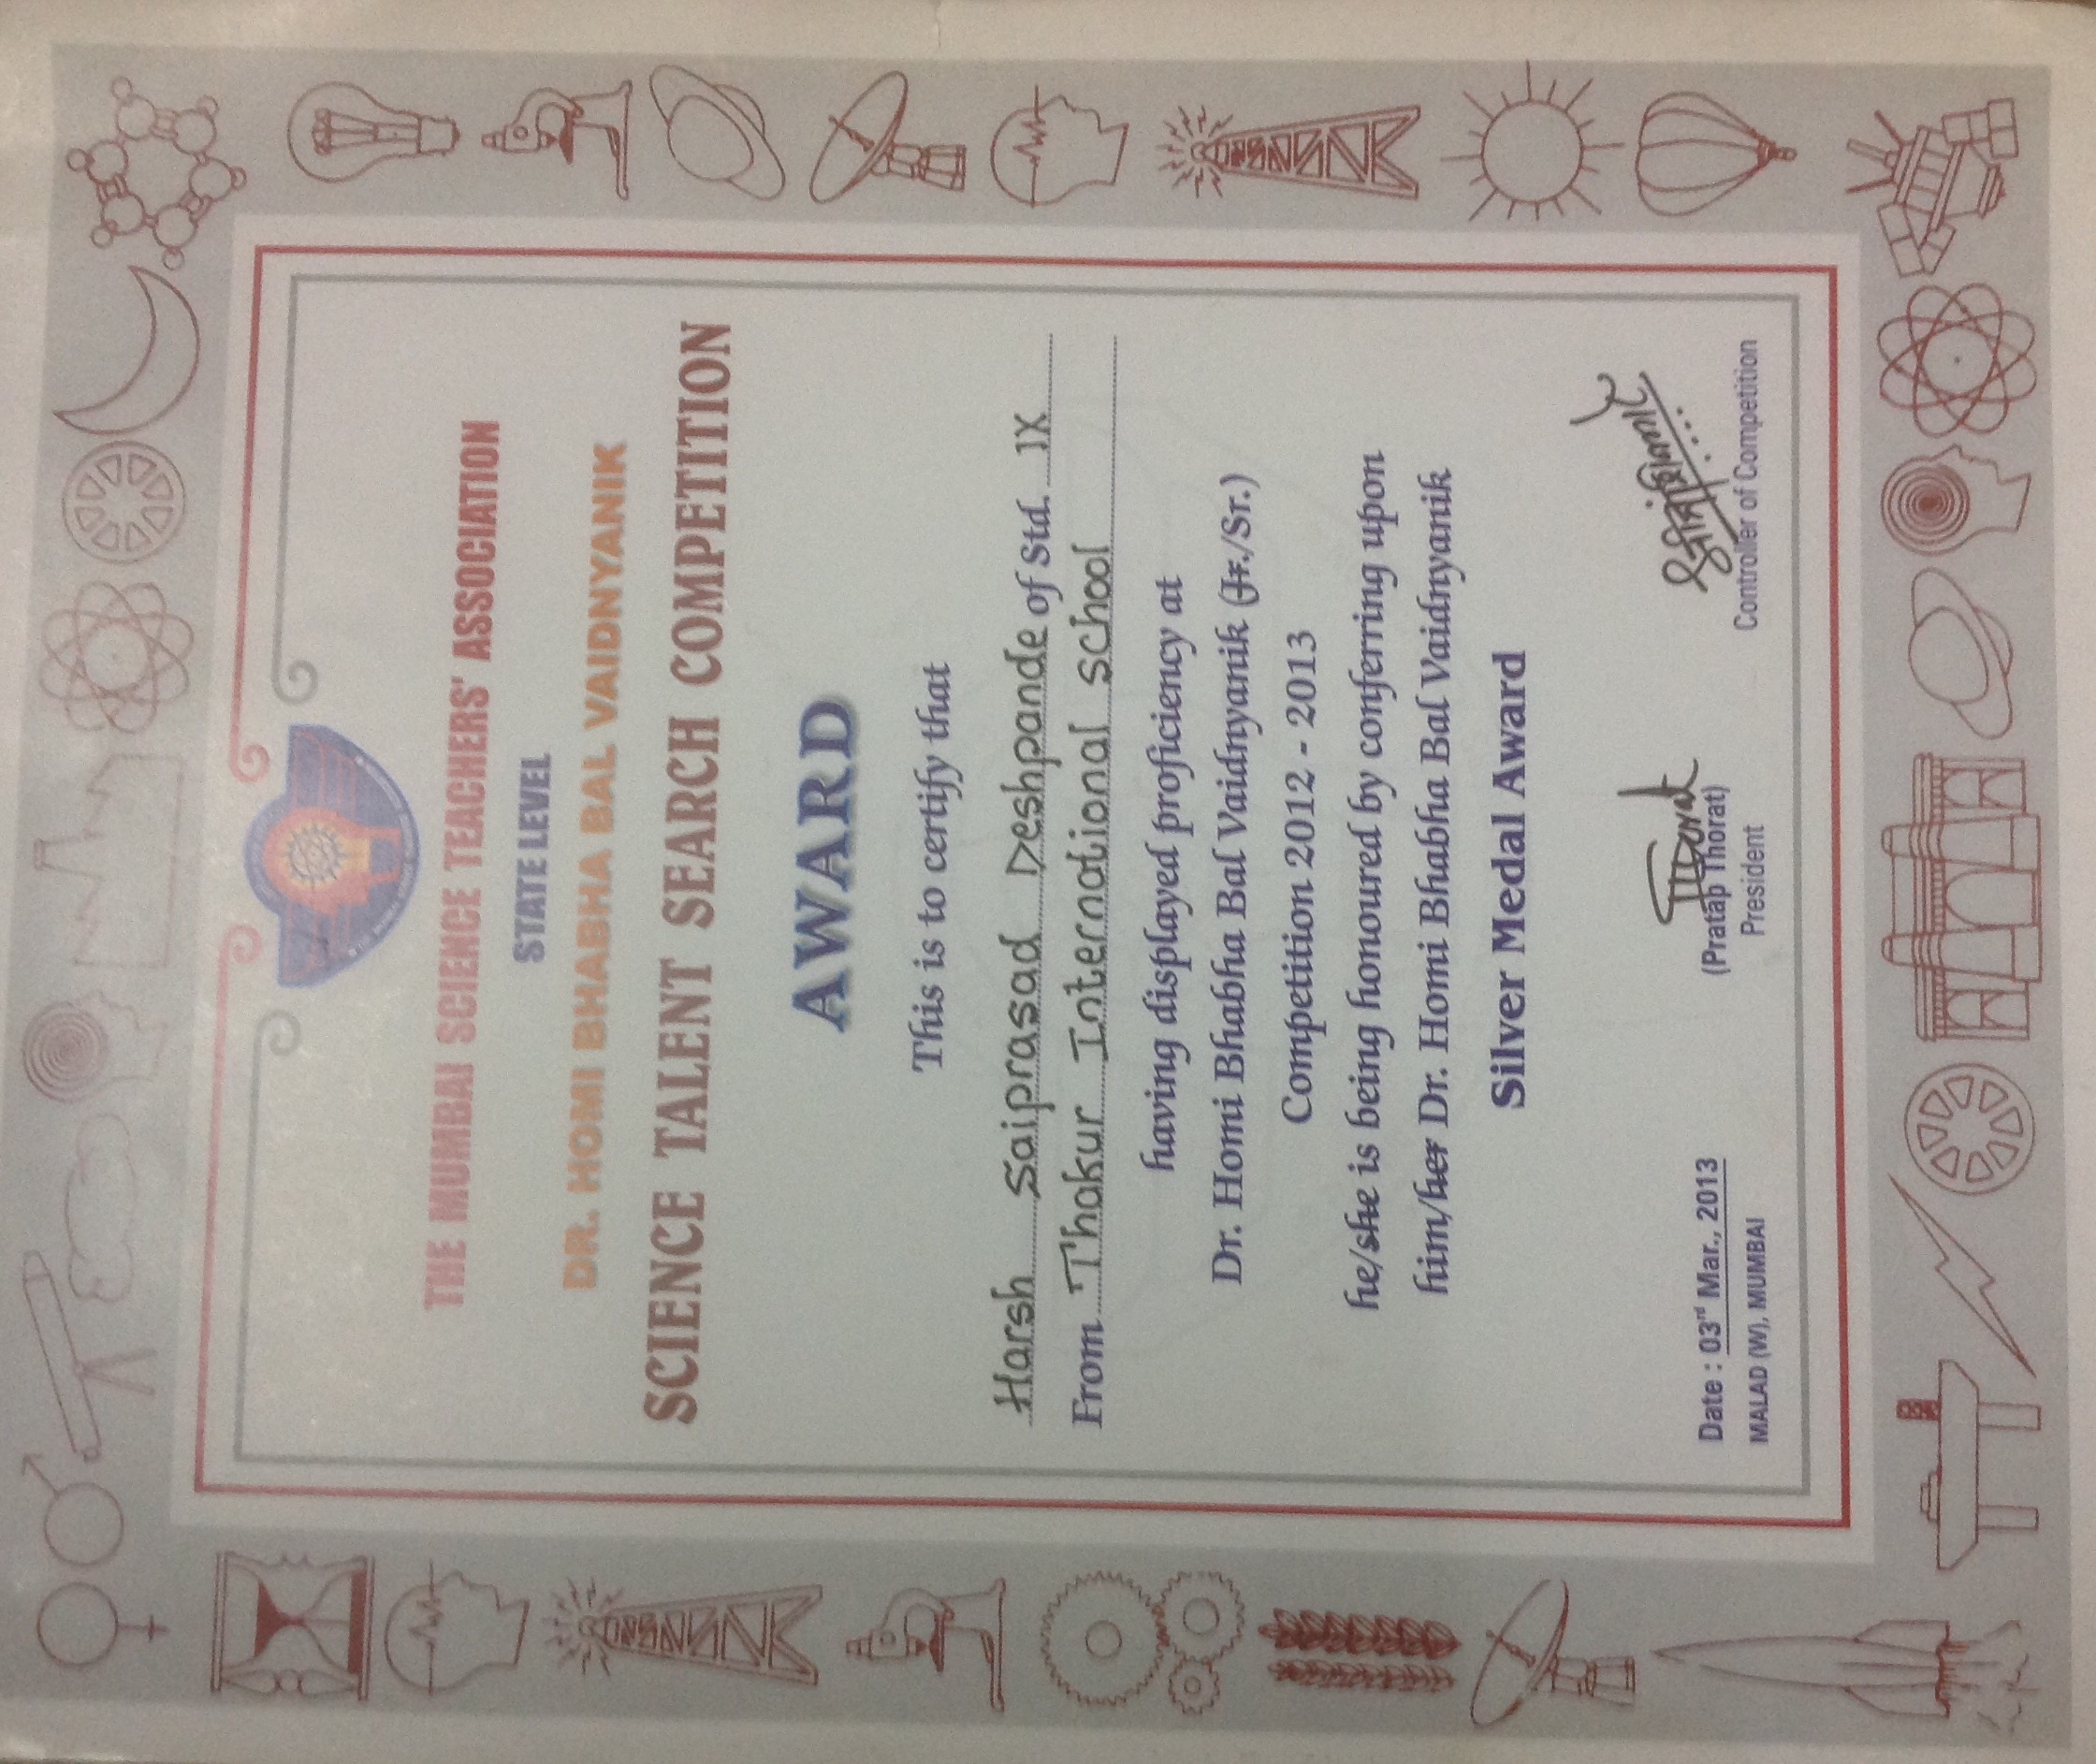 THE MUMBAI SCIENCE TEACHERS' ASSOCIATION
STATE LEVEL
DR. HOMI BHABHA BAL VAIDNYANIK
SCIENCE TALENT SEARCH COMPETITION
AWARD
This is to certify that
Harsh Saiprasad Deshpande of Std. IX
From Thakur International School
having displayed proficiency at
Dr. Homi Bhabha Bal Vaidnyanik (Jr./Sr.)
Competition 2012 - 2013
he/she is being honoured by conferring upon
him/her Dr. Homi Bhabha Bal Vaidnyanik
Silver Medal Award
Date : 03rd Mar., 2013
MALAD (W), MUMBAI
(Pratap Thorat)
President
Controller of Competition